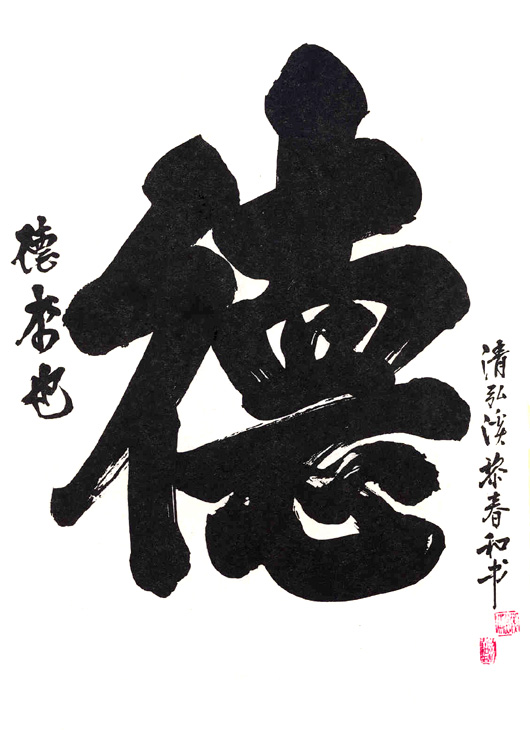 德
德本也
清弘溪黎春和书